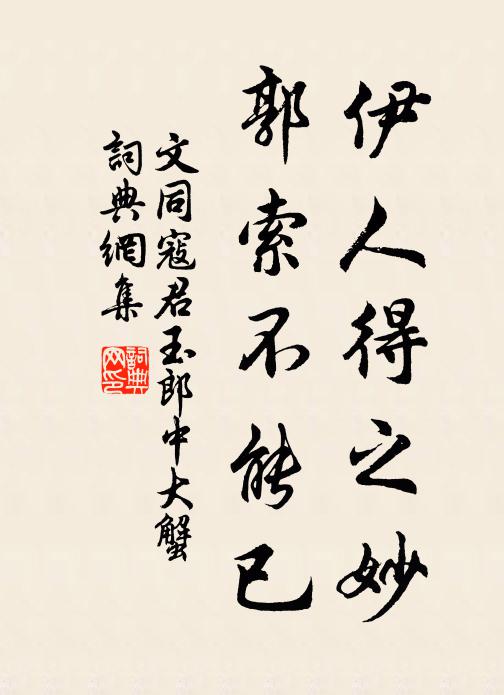 伊人得之妙
郭索不能已
文同寇君玉郎中大蟹
詞典網集
詞典网印